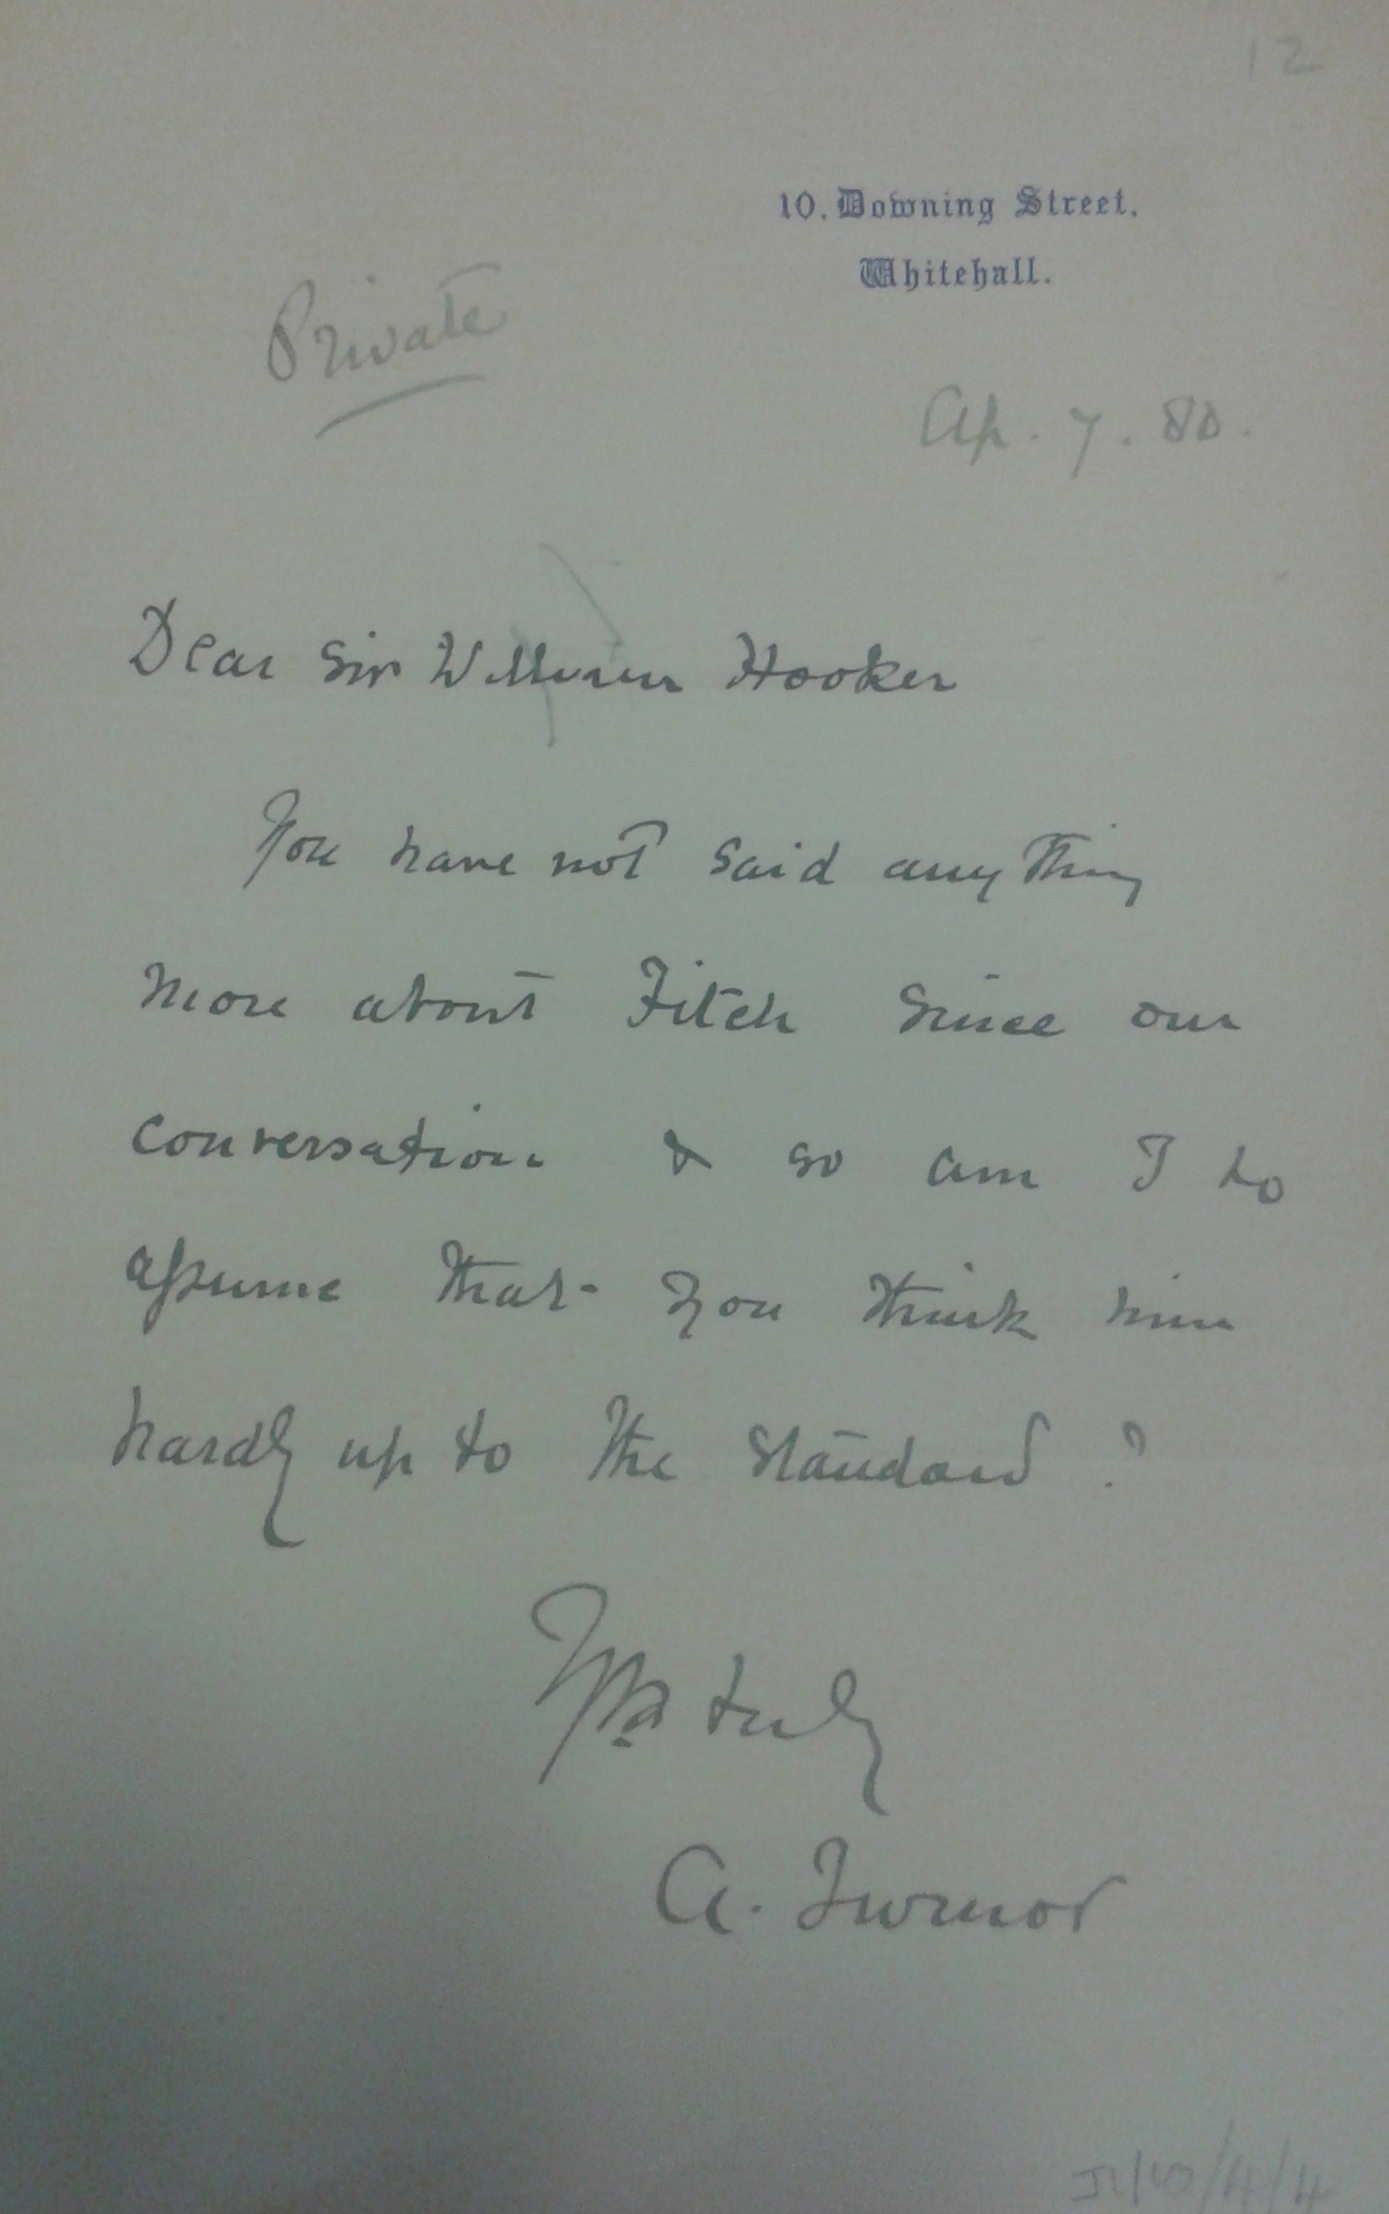 12
10, Downing Street,
Whitehall.
Private
Ap. 7. 80.
Dear Sir William Hooker
You have not said anything
more about Fitch since our
conversation & so am I to
assume that you think him
hardly up to the standard ?
Yrs truly
A. Turnor
/4/4